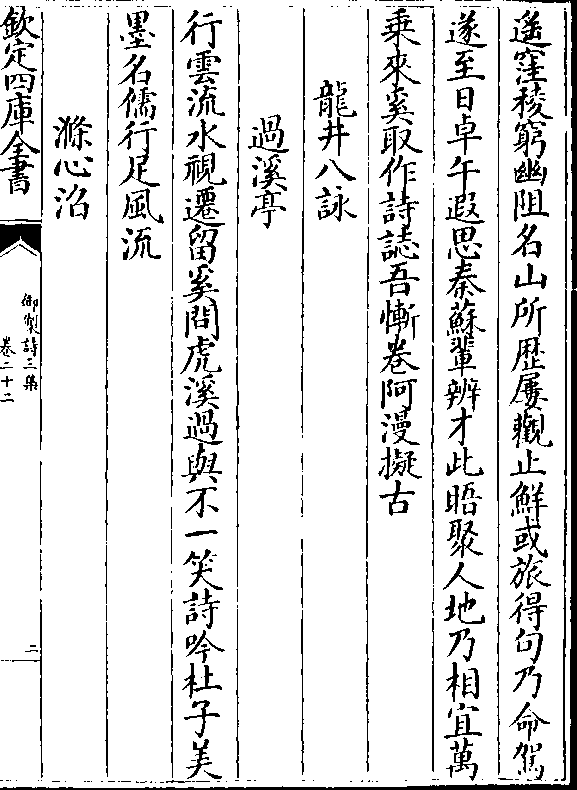 遙窪稜窮幽阻名山所歴屢觀止鮮或旅得句乃命駕
遂至日卓午遐思秦蘇輩辨才此晤聚人地乃相宜萬
乗來奚取作詩誌吾慚卷阿漫擬古
龍井八詠
過溪亭
行雲流水視遷留奚問虎溪過與不一笑詩吟杜子美
墨名儒行足風流
滌心沼
欽定四庫全書
御製詩三集
卷二十二
二